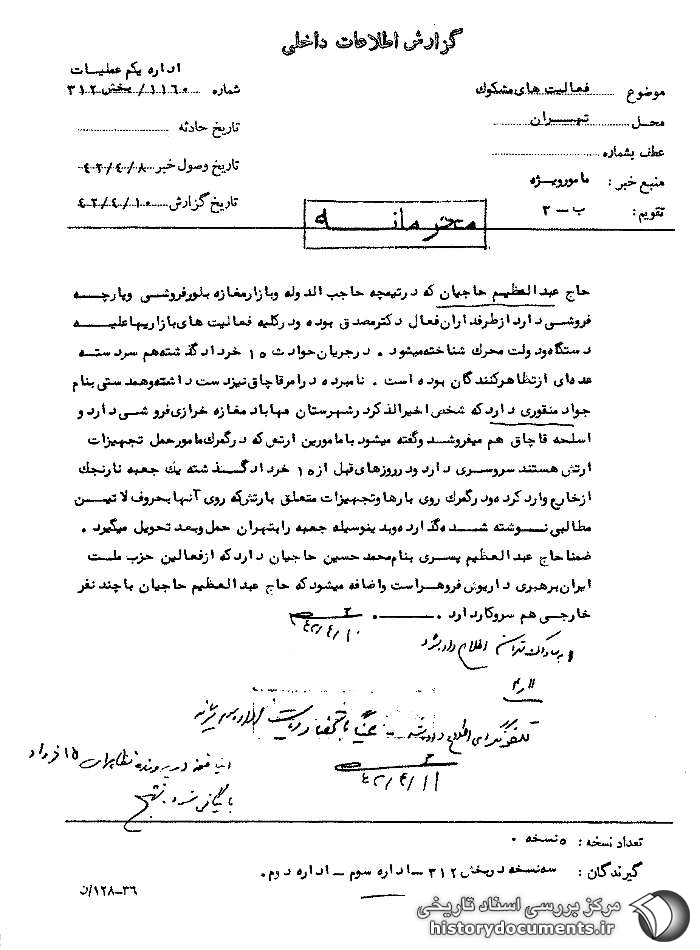 گزارش اطلاعات داخلی
اداره یکم عملیات
موضوع فعالیت های مشکوک
شماره ۱۱۶۰/بخش ۳۱۲
محل تهران
تاریخ حادثه
عطف بشماره
تاریخ وصول خبر ۴۲/۴/۸
منبع خبر : مامور ویژه
تاریخ گزارش ۴۲/۴/۱۰
تقویم : ب - ۳
محرمانه
حاج عبدالعظیم حاجیان که در تیمچه حاجب الدوله و بازار مغازه بلورفروشی و پارچه
فروشی دارد از طرفداران فعال دکتر مصدق بوده و در کلیه فعالیت های بازاریها علیه
دستگاه دولت محرک شناخته میشود . در جریان حوادث ۱۵ خرداد گذشته هم سردسته
عده‌ای از تظاهرکنندگان بوده است . نامبرده در امر قاچاق نیز دست داشته و همدستی بنام
جواد منقوری دارد که شخص اخیرالذکر در شهرستان مهاباد مغازه خرازی فروشی دارد و
اسلحه قاچاق هم میفروشد و گفته میشود با مامورین ارتش که در گمرک مامور حمل تجهیزات
ارتش هستند سروسری دارد و در روزهای قبل از ۱۵ خرداد گذشته یک جعبه نارنجک
از خارج وارد کرده و در گمرک روی بارها و تجهیزات متعلق بارتش که روی آنها بحروف لاتین
مطالبی نوشته شده گذارده و بدینوسیله جعبه را بتهران حمل و بعد تحویل میگیرد .
ضمنا حاج عبدالعظیم پسری بنام محمد حسین حاجیان دارد که از فعالین حزب ملت
ایران برهبری داریوش فروهر است و اضافه میشود که حاج عبدالعظیم حاجیان با چند نفر
خارجی هم سروکار دارد .
۴۲/۴/۱۰
بساواک تهران اطلاع داده شود
۴۲/۴/۱۱
در پرونده تظاهرات ۱۵ خرداد
بایگانی شود
تعداد نسخه : ۵ نسخه .
گیرندگان : سه نسخه در بخش ۳۱۲ - اداره سوم - اداره دوم .
۳۶-۱۲۸/ن
مرکز بررسی اسناد تاریخی
historydocuments.ir